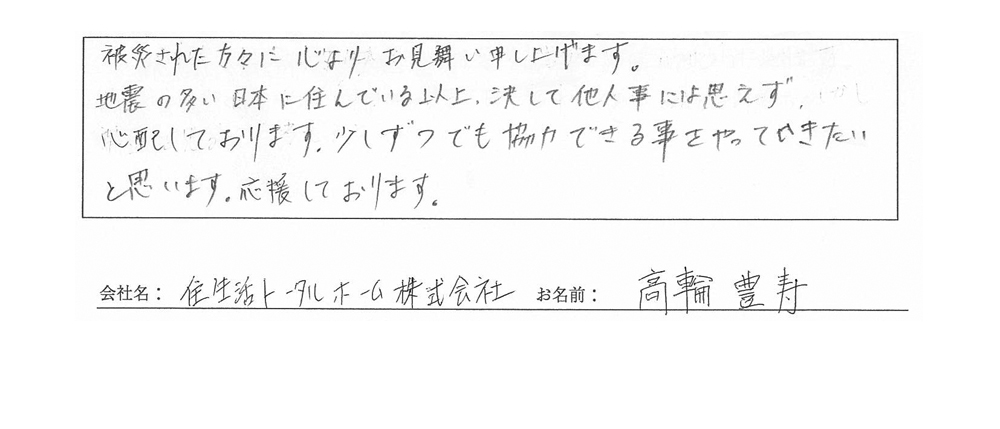 被災された方々に心よりお見舞い申し上げます。
地震の多い日本に住んでいる以上、決して他人事には思えず、
心配しております。少しずつでも協力できる事をやっていきたい
と思います。応援しております。
会社名： 住生活トータルホーム株式会社 お名前： 高輪 豊寿